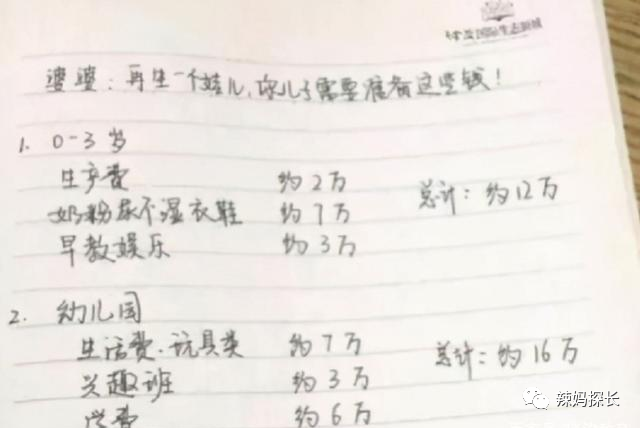 国际生态新城
婆婆：再生一个娃儿，你儿子需要准备这些钱！
1. 0-3岁
生产费 约2万
奶粉尿不湿衣鞋 约7万 总计：约12万
早教娱乐 约3万
2. 幼儿园
生活费、玩具类 约7万 总计：约16万
兴趣班 约3万
学费 约6万
辣妈探长